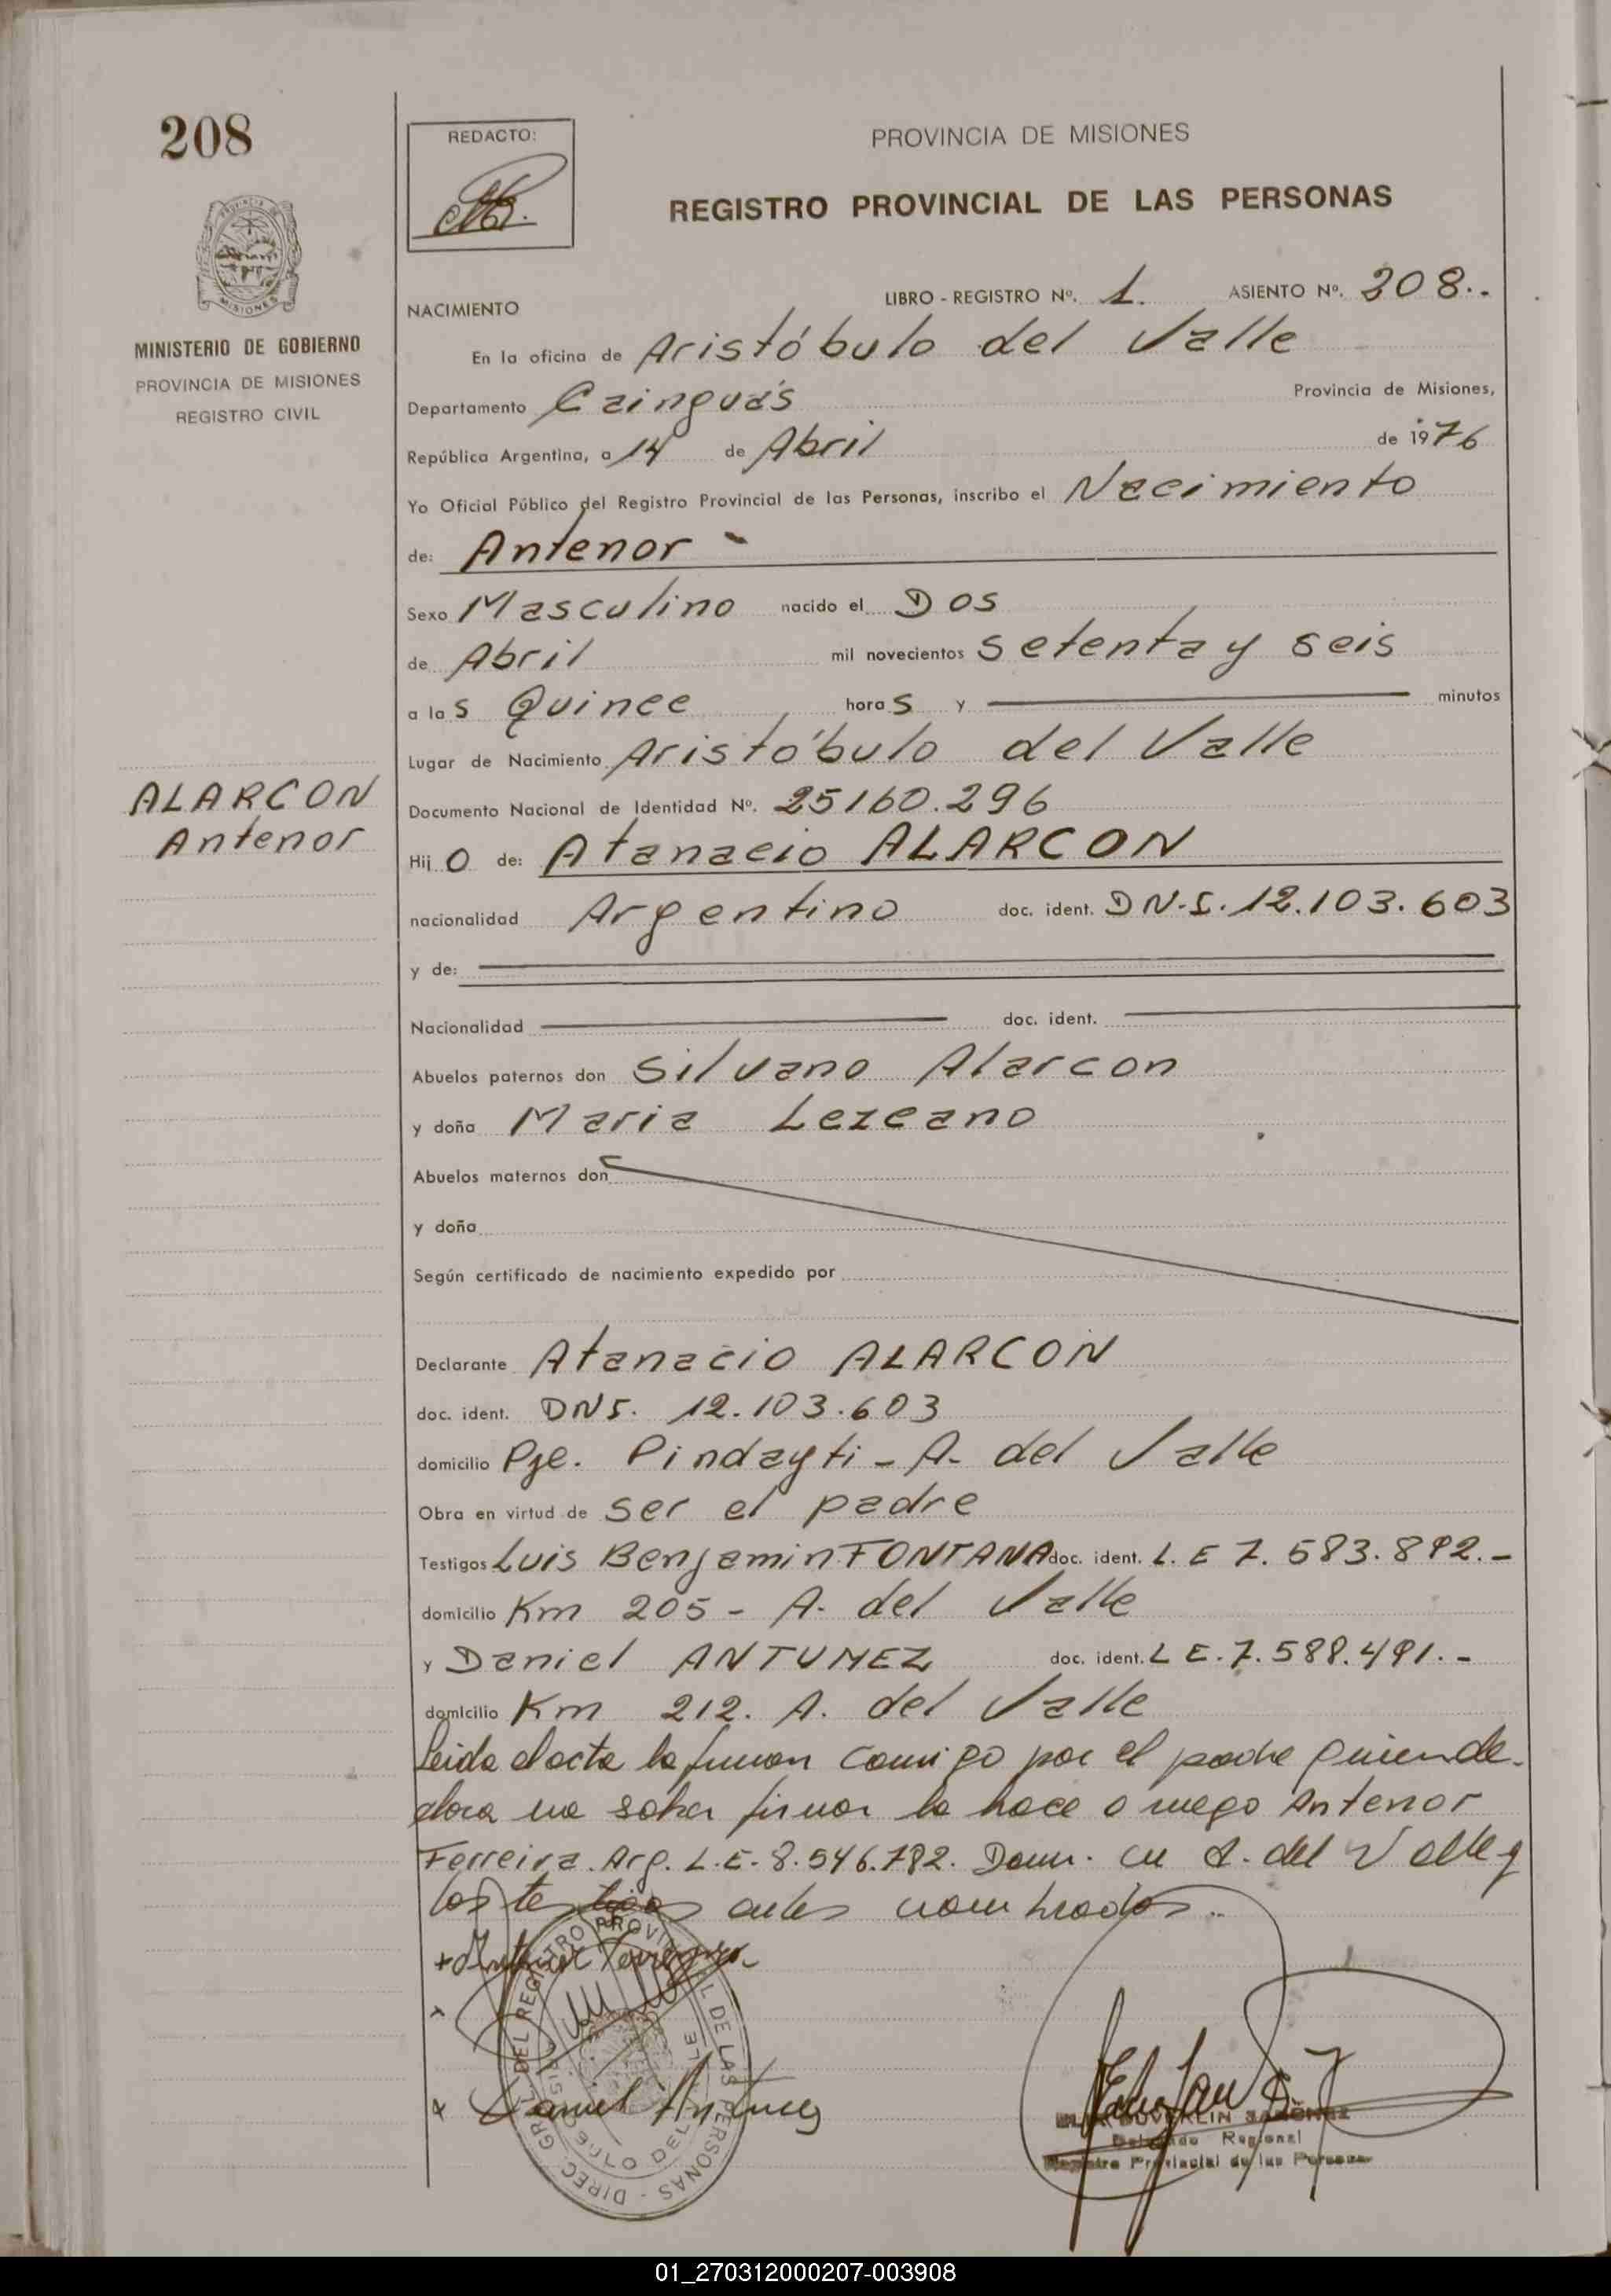 208
REDACTO:
PROVINCIA DE MISIONES
REGISTRO PROVINCIAL DE LAS PERSONAS
PROVINCIA DE
MISIONES
MINISTERIO DE GOBIERNO
PROVINCIA DE MISIONES
REGISTRO CIVIL
NACIMIENTO
LIBRO - REGISTRO Nº. 1. ASIENTO Nº. 208.-
En la oficina de Aristóbulo del Valle
Departamento Cainguás Provincia de Misiones,
República Argentina, a 14 de Abril de 1976
Yo Oficial Público del Registro Provincial de las Personas, inscribo el Nacimiento
de: Antenor -
Sexo Masculino nacido el Dos
de Abril mil novecientos setenta y seis
a las Quince horas y minutos
Lugar de Nacimiento Aristóbulo del Valle
ALARCON
Antenor
Documento Nacional de Identidad Nº. 25160.296
Hijo de: Atanacio ALARCON
nacionalidad Argentino doc. ident. DN.I. 12.103.603
y de:
Nacionalidad doc. ident.
Abuelos paternos don Silvano Alarcon
y doña Maria Lezcano
Abuelos maternos don
y doña
Según certificado de nacimiento expedido por
Declarante Atanacio ALARCON
doc. ident. DNI. 12.103.603
domicilio Pje. Pindayti - A. del Valle
Obra en virtud de ser el padre
Testigos Luis Benjamin FONTANA doc. ident. L.E 7.583.892.-
domicilio Km 205 - A. del Valle
y Daniel ANTUNEZ doc. ident. L E. 7.588.491.-
domicilio Km 212. A. del Valle
Leida el acta la firman conmigo por el padre quien de-
clara no saber firmar lo hace a ruego Antenor
Ferreira. Arg. L.E. 8.546.782. Dom. en A. del Valle y
los testigos antes nombrados.-
Daniel Antunez
DIREC. GRAL. DEL REGISTRO PROVINCIAL DE LAS PERSONAS
Delegado Regional
Registro Provincial de las Personas
01_270312000207-003908